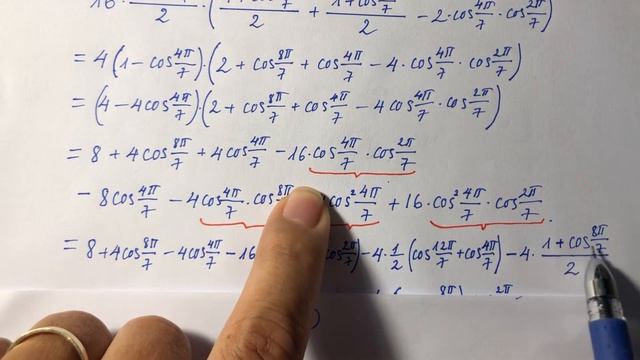 16 · 2 · ( 2 + 1+cos 7 / 2 − 2·cos 4π/7 · cos 2π/7 )
= 4(1 − cos 4π/7)·(2 + cos 8π/7 + cos 4π/7 − 4·cos 4π/7 · cos 2π/7)
= (4 − 4cos 4π/7)·(2 + cos 8π/7 + cos 4π/7 − 4cos 4π/7 · cos 2π/7)
= 8 + 4cos 8π/7 + 4cos 4π/7 − 16·cos 4π/7 · cos 2π/7
− 8cos 4π/7 − 4cos 4π/7 · cos 8π cos² 4π/7 + 16·cos² 4π/7 · cos 2π/7 .
= 8 + 4cos 8π/7 − 4cos 4π/7 − 16 cos 2π/7) − 4· 1/2 (cos 12π/7 + cos 4π/7) − 4· (1+cos 8π/7)/2